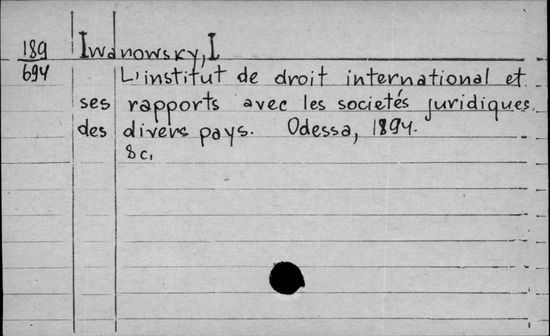 189 Iwanowsky, I.
694 L'institut de droit international et
ses rapports avec les societés juridiques
des divers pays. Odessa, 1894.
8c,